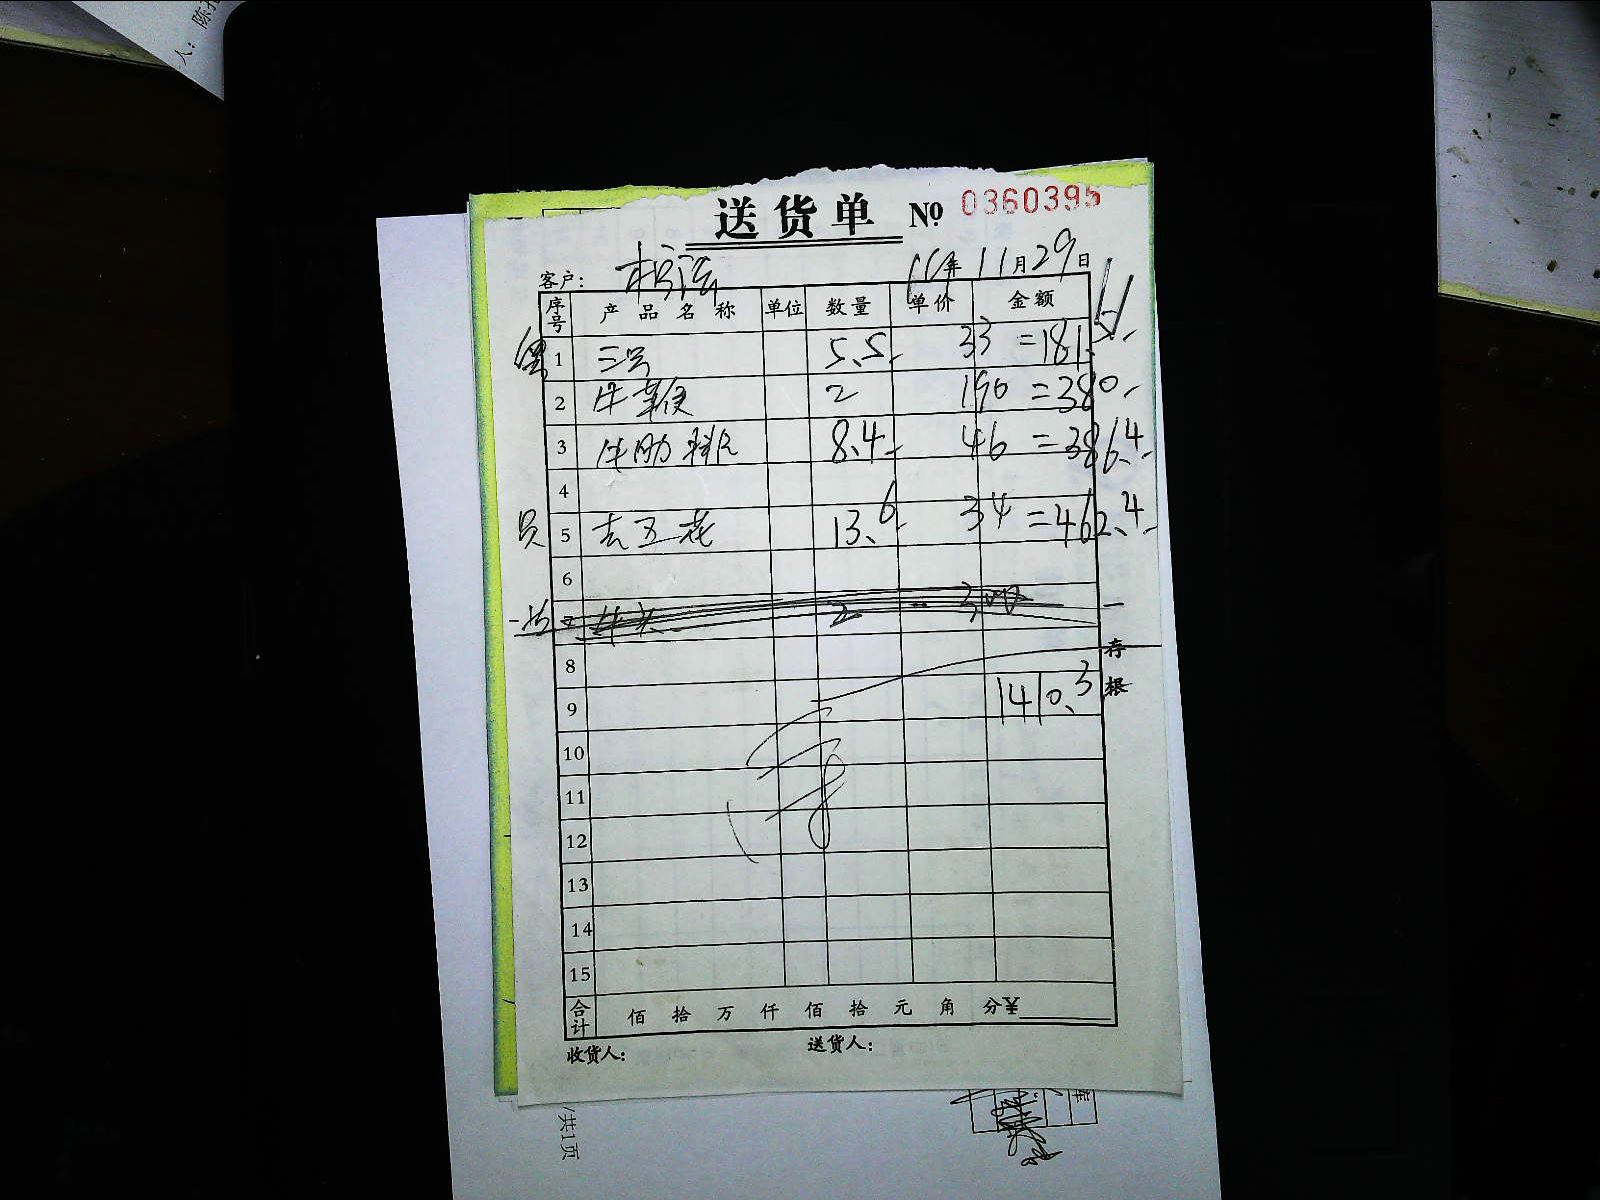 人： 陈
送货单 № 0360395
客户： 年 11月29日
序号 产品名称 单位 数量 单价 金额
1 三号 5.5- 33 =181.5-
2 牛鞭 2 190 =380-
3 牛肋 8.4- 46 =386.4-
4
员 5 去五花 13.6- 34 =462.4-
6
7 牛 2 - 300
一存根
8
9 1410.3
10
11
12
13
14
15
合计 佰 拾 万 仟 佰 拾 元 角 分¥
收货人： 送货人：
/共1页
库